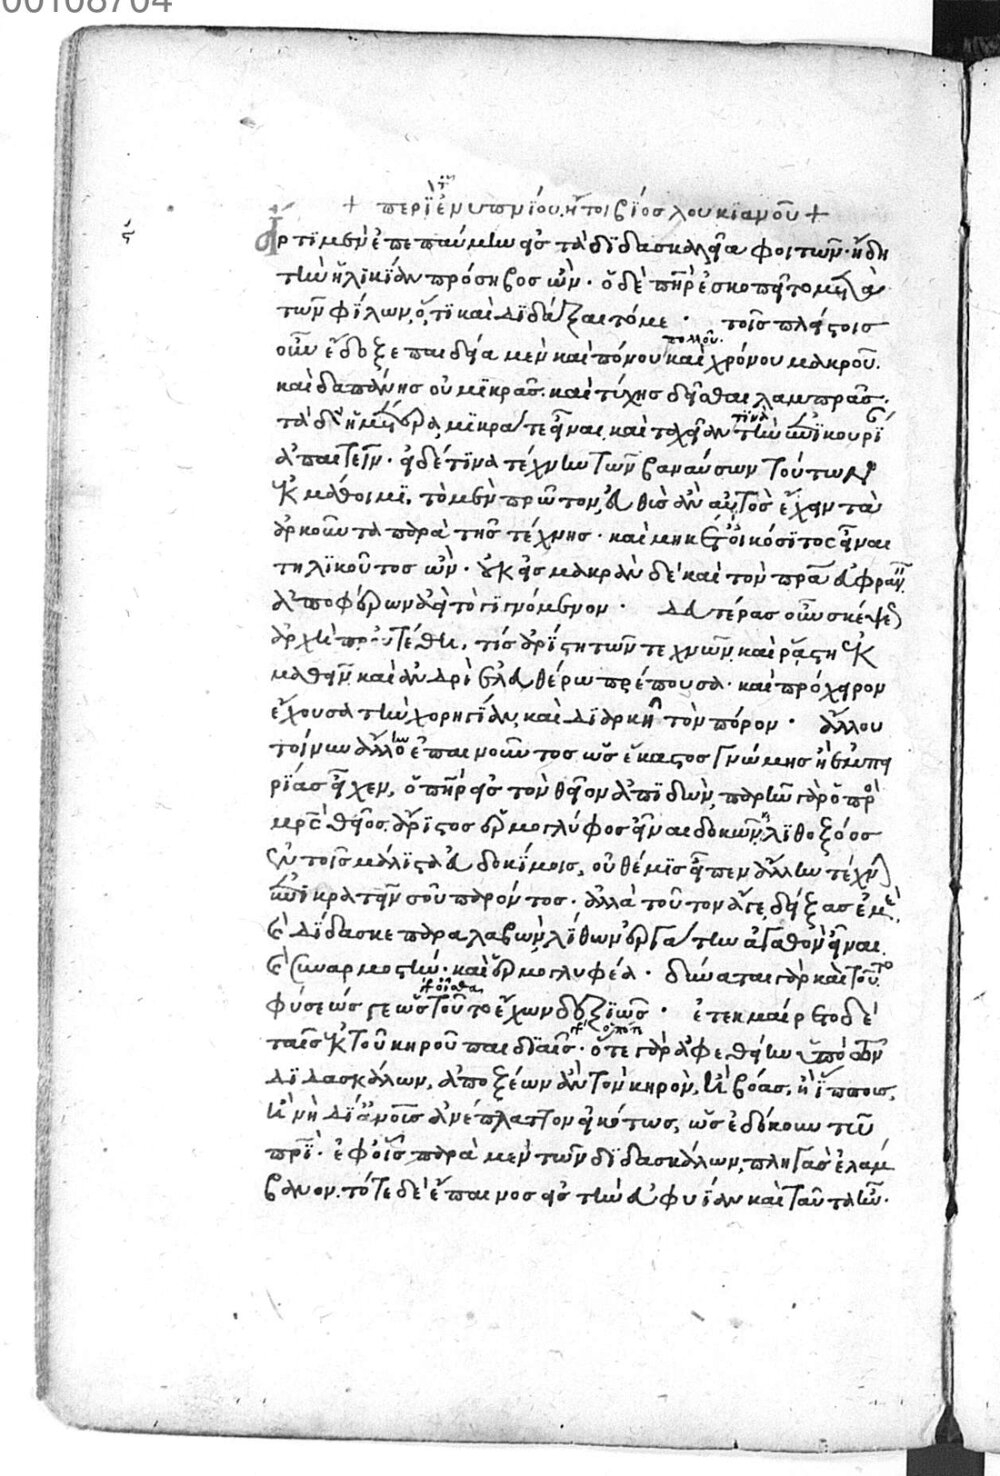 00108704
+ περὶ ἐνυπνίου, ἤτοι βίος λουκιανοῦ +
Ἄρτι μὲν ἐπεπαύμην εἰς τὰ διδασκαλεῖα φοιτῶν· ἤδη
τὴν ἡλικίαν πρόσηβος ὤν· ὁ δὲ πατὴρ ἐσκοπεῖτο μετὰ
τῶν φίλων, ὅ, τι καὶ διδάξαιτό με · τοῖς πλείστοις
οὖν ἔδοξε παιδεία μὲν καὶ πόνου πολλοῦ· καὶ χρόνου μακροῦ.
καὶ δαπάνης οὐ μικρᾶς. καὶ τύχης δεῖσθαι λαμπρᾶς.
τὰ δ' ἡμέτερα, μικρά τε εἶναι, καὶ ταχεῖάν τινα τὴν ἐπικουρί
ἀπαιτεῖν· εἰ δέ τινα τέχνην τῶν βαναύσων τούτων
ἐκμάθοιμι, τὸ μὲν πρῶτον, εὐθὺς ἂν αὐτὸς ἔχειν τὰ
ἀρκοῦντα παρὰ τῆς τέχνης· καὶ μηκέτ' οἰκόσιτος εἶναι
τηλικοῦτος ὤν· οὐκ εἰς μακρὰν δὲ καὶ τὸν πατέρα εὐφραίν
ἀποφέρων ἀεὶ τὸ γιγνόμενον · δευτέρας οὖν σκέψεως
ἀρχὴ προὐτέθη, τίς ἀρίστη τῶν τεχνῶν, καὶ ῥᾴστη ἐκ
μαθεῖν, καὶ ἀνδρὶ ἐλευθέρῳ πρέπουσα· καὶ πρόχειρον
ἔχουσα τὴν χορηγίαν, καὶ διαρκῆ τὸν πόρον · ἄλλου
τοίνυν ἄλλην ἐπαινοῦντος ὡς ἕκαστος γνώμης ἢ ἐμπει
ρίας εἶχεν, ὁ πατὴρ εἰς τὸν θεῖον ἀπιδών, παρῆν γὰρ ὁ πρὸς
μητρὸς θεῖος, ἄριστος ἑρμογλύφος εἶναι δοκῶν, λιθοξόος
ἐν τοῖς μάλιστα εὐδοκίμοις, οὐ θέμις εἶπεν ἄλλην τέχνην
ἐπικρατεῖν σοῦ παρόντος· ἀλλὰ τοῦτον ἄγε, δείξας ἐμὲ,
καὶ δίδασκε παραλαβὼν, λίθων ἐργάτην ἀγαθὸν εἶναι
καὶ συναρμοστὴν· καὶ ἑρμογλυφέα · δύναται γὰρ καὶ τοῦτο
φύσεώς γε ὡς οἶσθα τοῦτο ἔχων δεξιῶς · ἐτεκμαίρετο δὲ
ταῖς ἐκ τοῦ κηροῦ παιδιαῖς· ὁπότε γὰρ ἀφεθείην ὑπὸ τῶν
διδασκάλων, ἀποξέων ἂν τὸν κηρὸν, ἢ βόας, ἢ ἵππους,
ἢ νὴ δί' ἀν͞ους ἀνέπλαττον εἰκότως, ὡς ἐδόκουν τῷ
πατρί· ἐφ' οἷς παρὰ μὲν τῶν διδασκάλων, πληγὰς ἐλάμ
βανον. τότε δὲ ἔπαινος εἰς τὴν εὐφυΐαν καὶ ταῦτα ἦν·